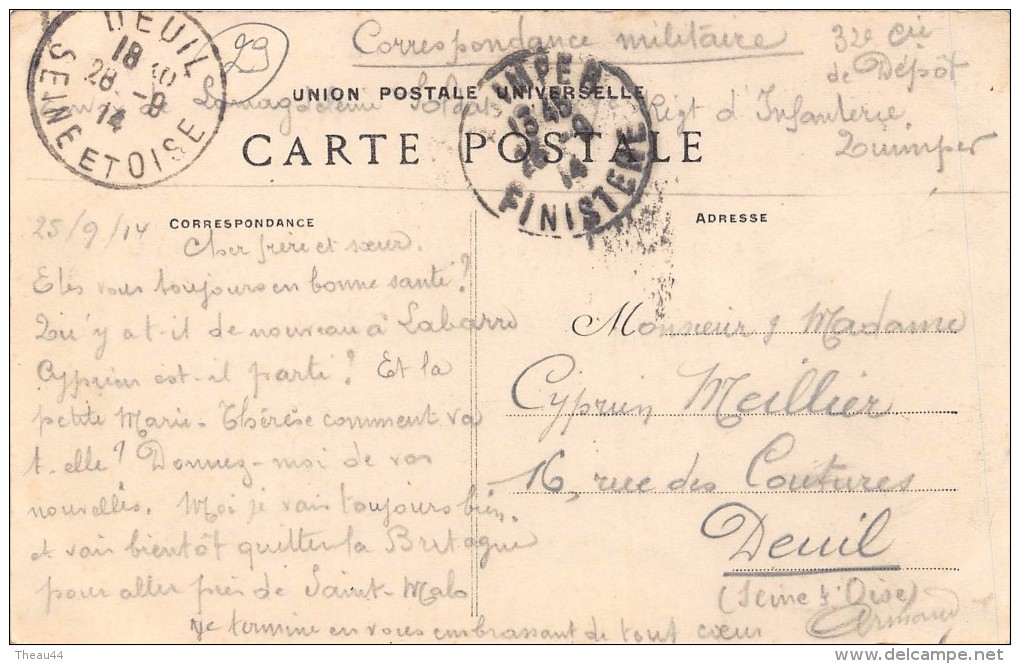 DEUIL
18 10
28 - 9
14
SEINE ET OISE
29
Correspondance militaire
32e Cie
de Dépôt
UNION POSTALE UNIVERSELLE
Soldat Rgt d'Infanterie
Quimper
CARTE POSTALE
QUIMPER
13 45
14
FINISTERE
CORRESPONDANCE
ADRESSE
25/9/14
Cher frère et sœur.
Etes vous toujours en bonne santé?
Qu'y a t-il de nouveau à Labarre
Cyprien est-il parti? Et la
petite Marie-Thérèse comment va
t-elle? Donnez-moi de vos
nouvelles. Moi je vais toujours bien.
et vais bientôt quitter la Bretagne
pour aller près de Saint-Malo
Je termine en vous embrassant de tout cœur
Armand
Monsieur & Madame
Cyprien Meillier
16, rue des Coutures
Deuil
(Seine & Oise)
Theau44
delcampe.net